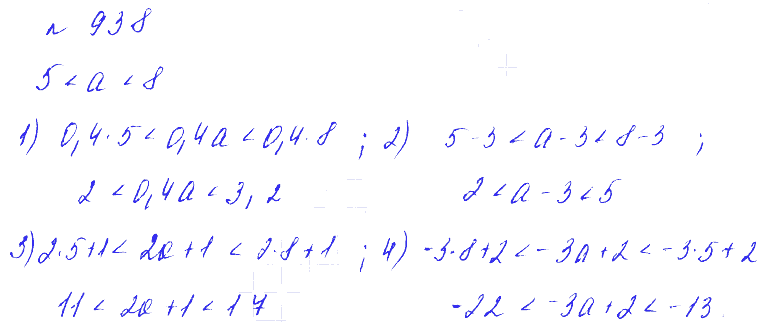 n 938
5 < a < 8
1) 0,4·5 < 0,4a < 0,4·8 ; 2) 5-3 < a-3 < 8-3 ;
2 < 0,4a < 3,2 2 < a-3 < 5
3) 2·5+1 < 2a+1 < 2·8+1 ; 4) -3·8+2 < -3a+2 < -3·5+2
11 < 2a+1 < 17 -22 < -3a+2 < -13